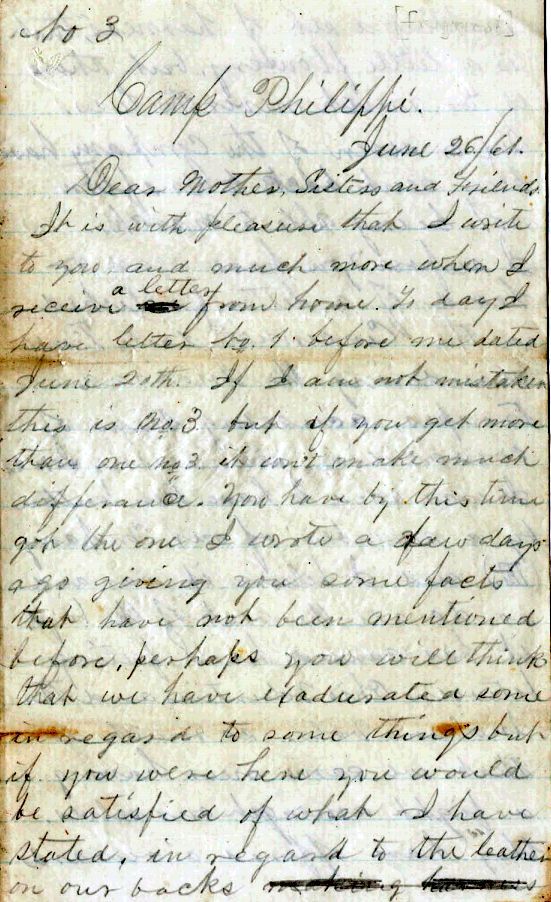 No 3
Camp Philippi.
June 26/61.
Dear Mother, Sisters and Friends.
It is with pleasure that I write
to you and much more when I
receive a letter from home. To day I
have letter No. 1. before me dated
June 20th. If I am not mistaken
this is No 3 but if you get more
than one No 3 it won't make much
differance. You have by this time
got the one I wrote a few days
ago giving you some facts
that have not been mentioned
before, perhaps you will think
that we have exadurated some
in regard to some things but
if you were here you would
be satisfied of what I have
stated, in regard to the leather
on our backs making